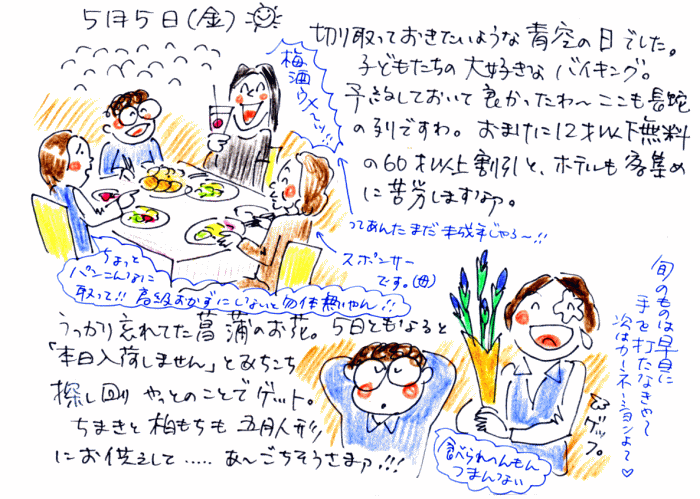 5月5日(金)
切り取っておきたいような青空の日でした。
子どもたちの大好きなバイキング。
予約しておいて良かったわ〜ここも長蛇
の列ですわ。おまけに12才以下無料
の60才以上割引と、ホテルも客集め
に苦労しますなァ。
梅酒ウメ〜ッ!!
ってあんたまだ未成年じゃろ〜!!
スポンサー
です。(母)
ちょっと
パンこんなに
取って!!高級おかずにしないと勿体無いやん!!
うっかり忘れてた菖蒲のお花。5日ともなると
「本日入荷しません」とあちこち
探し回りやっとのことでゲット。
ちまきと柏もちも五月人形
にお供えして.....あ〜ごちそうさまァ!!!
旬のものは早目に
手を打たなきゃって
次はカーネーションよて♡
ゲップ。
食べられへんもん
つまんない